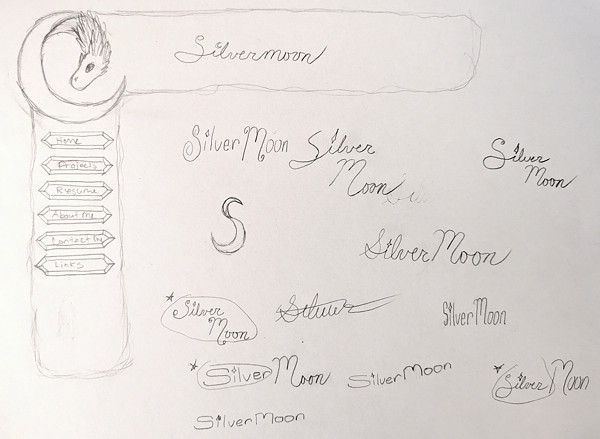 Silvermoon
Home
Projects
Resume
About Me
Contact Me
Links
Silver Moon
Silver
Moon
Silver
Moon
S
Silver Moon
* Silver
Moon
Silver Moon
* Silver Moon
Silver Moon
* Silver Moon
Silver Moon